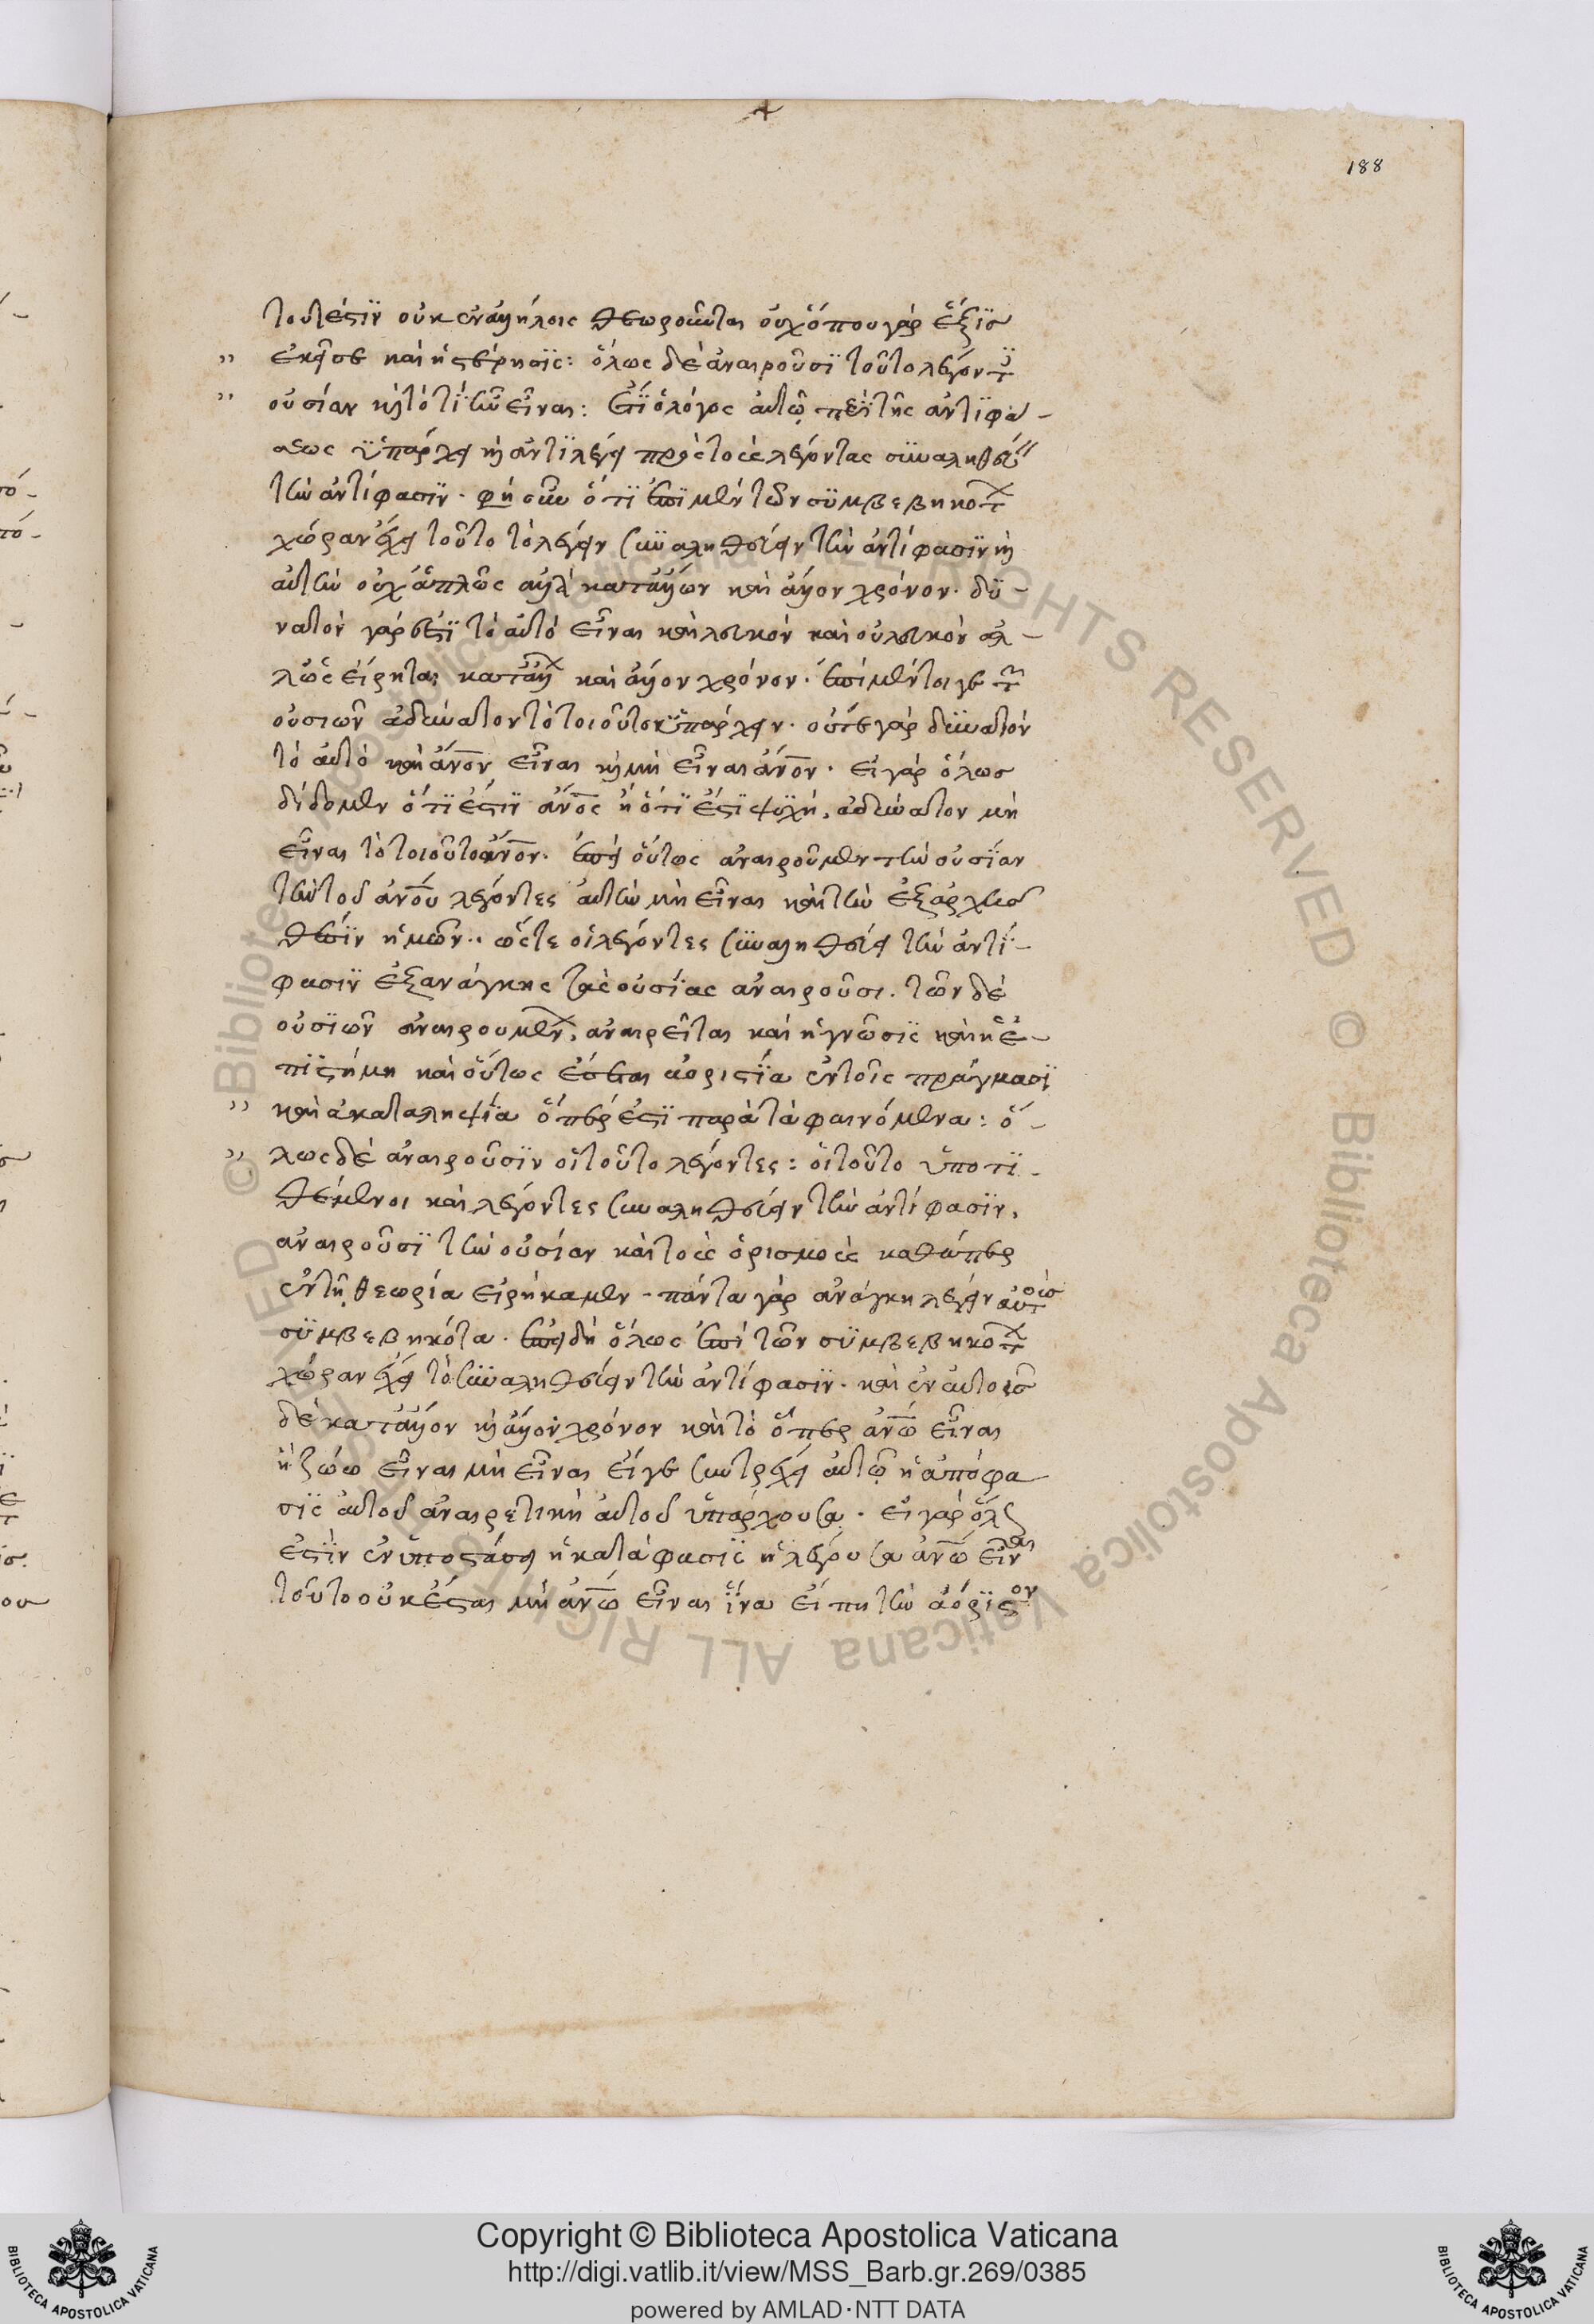 188
τουτέστϊν οὐκ ἐν ἀλλήλοις θεωροῦνται οὐχ ὅπου γὰρ ἕξϊσ
ἐκεῖσε καὶ ἡ στέρησϊς: ὅλως δὲ ἀναιροῦσϊ τοῦτο λέγοντ
οὐσίαν καὶ τὸ τί ἦν εἶναι: ἔτϊ ὁ λόγος αὐτῷ περὶ τῆς ἀντϊφά-
σεως ϋπάρχει καὶ ἀντϊλέγει πρὸς τοὺς λέγοντας συναληθεύειν
τὴν ἀντίφασϊν. φησὶν ὅτϊ ἐπὶ μὲν τῶν συμβεβηκότ
χώραν ἔχει τοῦτο τὸ λέγειν συναληθεύειν τὴν ἀντίφασϊν καὶ
αὐτὴν οὐχ ἁπλῶς ἀλλὰ κατ' ἄλλον καὶ ἄλλον χρόνον. δυ-
νατὸν γάρ ἐστϊ τὸ αὐτὸ εἶναι καὶ λευκὸν καὶ οὐ λευκὸν ἀλ-
λ' ὡς εἴρηται κατ' ἄλλ καὶ ἄλλον χρόνον. ἐπὶ μέντοιγε τ
οὐσιῶν ἀδύνατον τὸ τοιοῦτον ϋπάρχειν. οὔτε γὰρ δϋνατὸν
τὸ αὐτὸ καὶ ἄνον εἶναι καὶ μὴ εἶναι ἄνον. εἰ γὰρ ὅλωσ
δίδομεν ὅτϊ ἐστϊν ἄνος ἢ ὅτϊ ἐστϊ ψϋχή, ἀδύνατον μὴ
εἶναι τὸ τοιοῦτο ἄνον. ἐπεὶ οὕτως ἀναιροῦμεν τὴν οὐσϊαν
τὴν τοῦ ἀνου λέγοντες αὐτὴν μὴ εἶναι καὶ τὴν ἐξαρχῆσ
θέσϊν ἡμῶν.. ὥστε οἱ λέγοντες συναληθεύει τὴν ἀντϊ-
φασιν ἐξανάγκης τὰς οὐσϊας ἀναιροῦσι. τῶν δὲ
οὐσϊῶν ἀναιρουμέν, ἀναιρεῖται καὶ ἡ γνῶσϊς καὶ ἡ ἐ-
πϊστήμη καὶ οὕτως ἔσται ἀοριστϊα ἐν τοῖς πράγμασϊ
καὶ ἀκαταληψϊα ὅπερ ἐστϊ παρὰ τὰ φαινόμενα: ὅ-
λως δὲ ἀναιροῦσϊν οἱ τοῦτο λέγοντες: οἱ τοῦτο ὑποτϊ-
θέμενοι καὶ λέγοντες συναληθεύειν τὴν ἀντίφασϊν,
ἀναιροῦσϊ τὴν οὐσίαν καὶ τοὺς ὁρισμοὺς καθάπερ
ἐν τῇ θεωρία εἰρήκαμεν. πάντα γὰρ ἀνάγκη λέγειν αὐτοῖσ
σϋμβεβηκότα. ἐπειδὴ ὅλως ἐπὶ τῶν σϋμβεβηκότ
χώραν ἔχει τὸ συναληθεύειν τὴν ἀντίφασϊν. καὶ ἐν αὐτοῖσ
δὲ κατ' ἄλλον καὶ ἄλλον χρόνον καὶ τὸ ὅπερ ἀνω εἶναι
ἢ ζώω εἶναι μὴ εἶναι εἴγε συντρέχει αὐτῷ ἡ ἀπόφα
σϊς αὐτοῦ ἀναιρετικὴ αὐτοῦ ὑπάρχουσα. εἰ γὰρ ὅλως
ἐστϊν ἐν ὑποστάσει ἡ κατάφασϊς ἡ λέγουσα ἀνω εἶναι
τοῦτο οὐκ ἔσται μὴ ἀνω εἶναι ἵνα εἴπη τὴν ἀόρϊστον
Copyright © Biblioteca Apostolica Vaticana
http://digi.vatlib.it/view/MSS_Barb.gr.269/0385
powered by AMLAD·NTT DATA